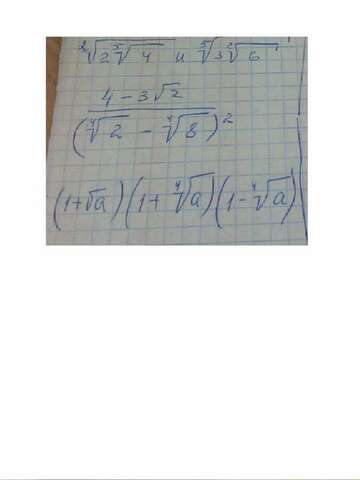 ∛(2 ⁵√4) и ⁵√(3 ∛6)
(4 - 3√2) / (⁴√2 - ⁴√8)²
(1+√a)(1+ ⁴√a)(1- ⁴√a)